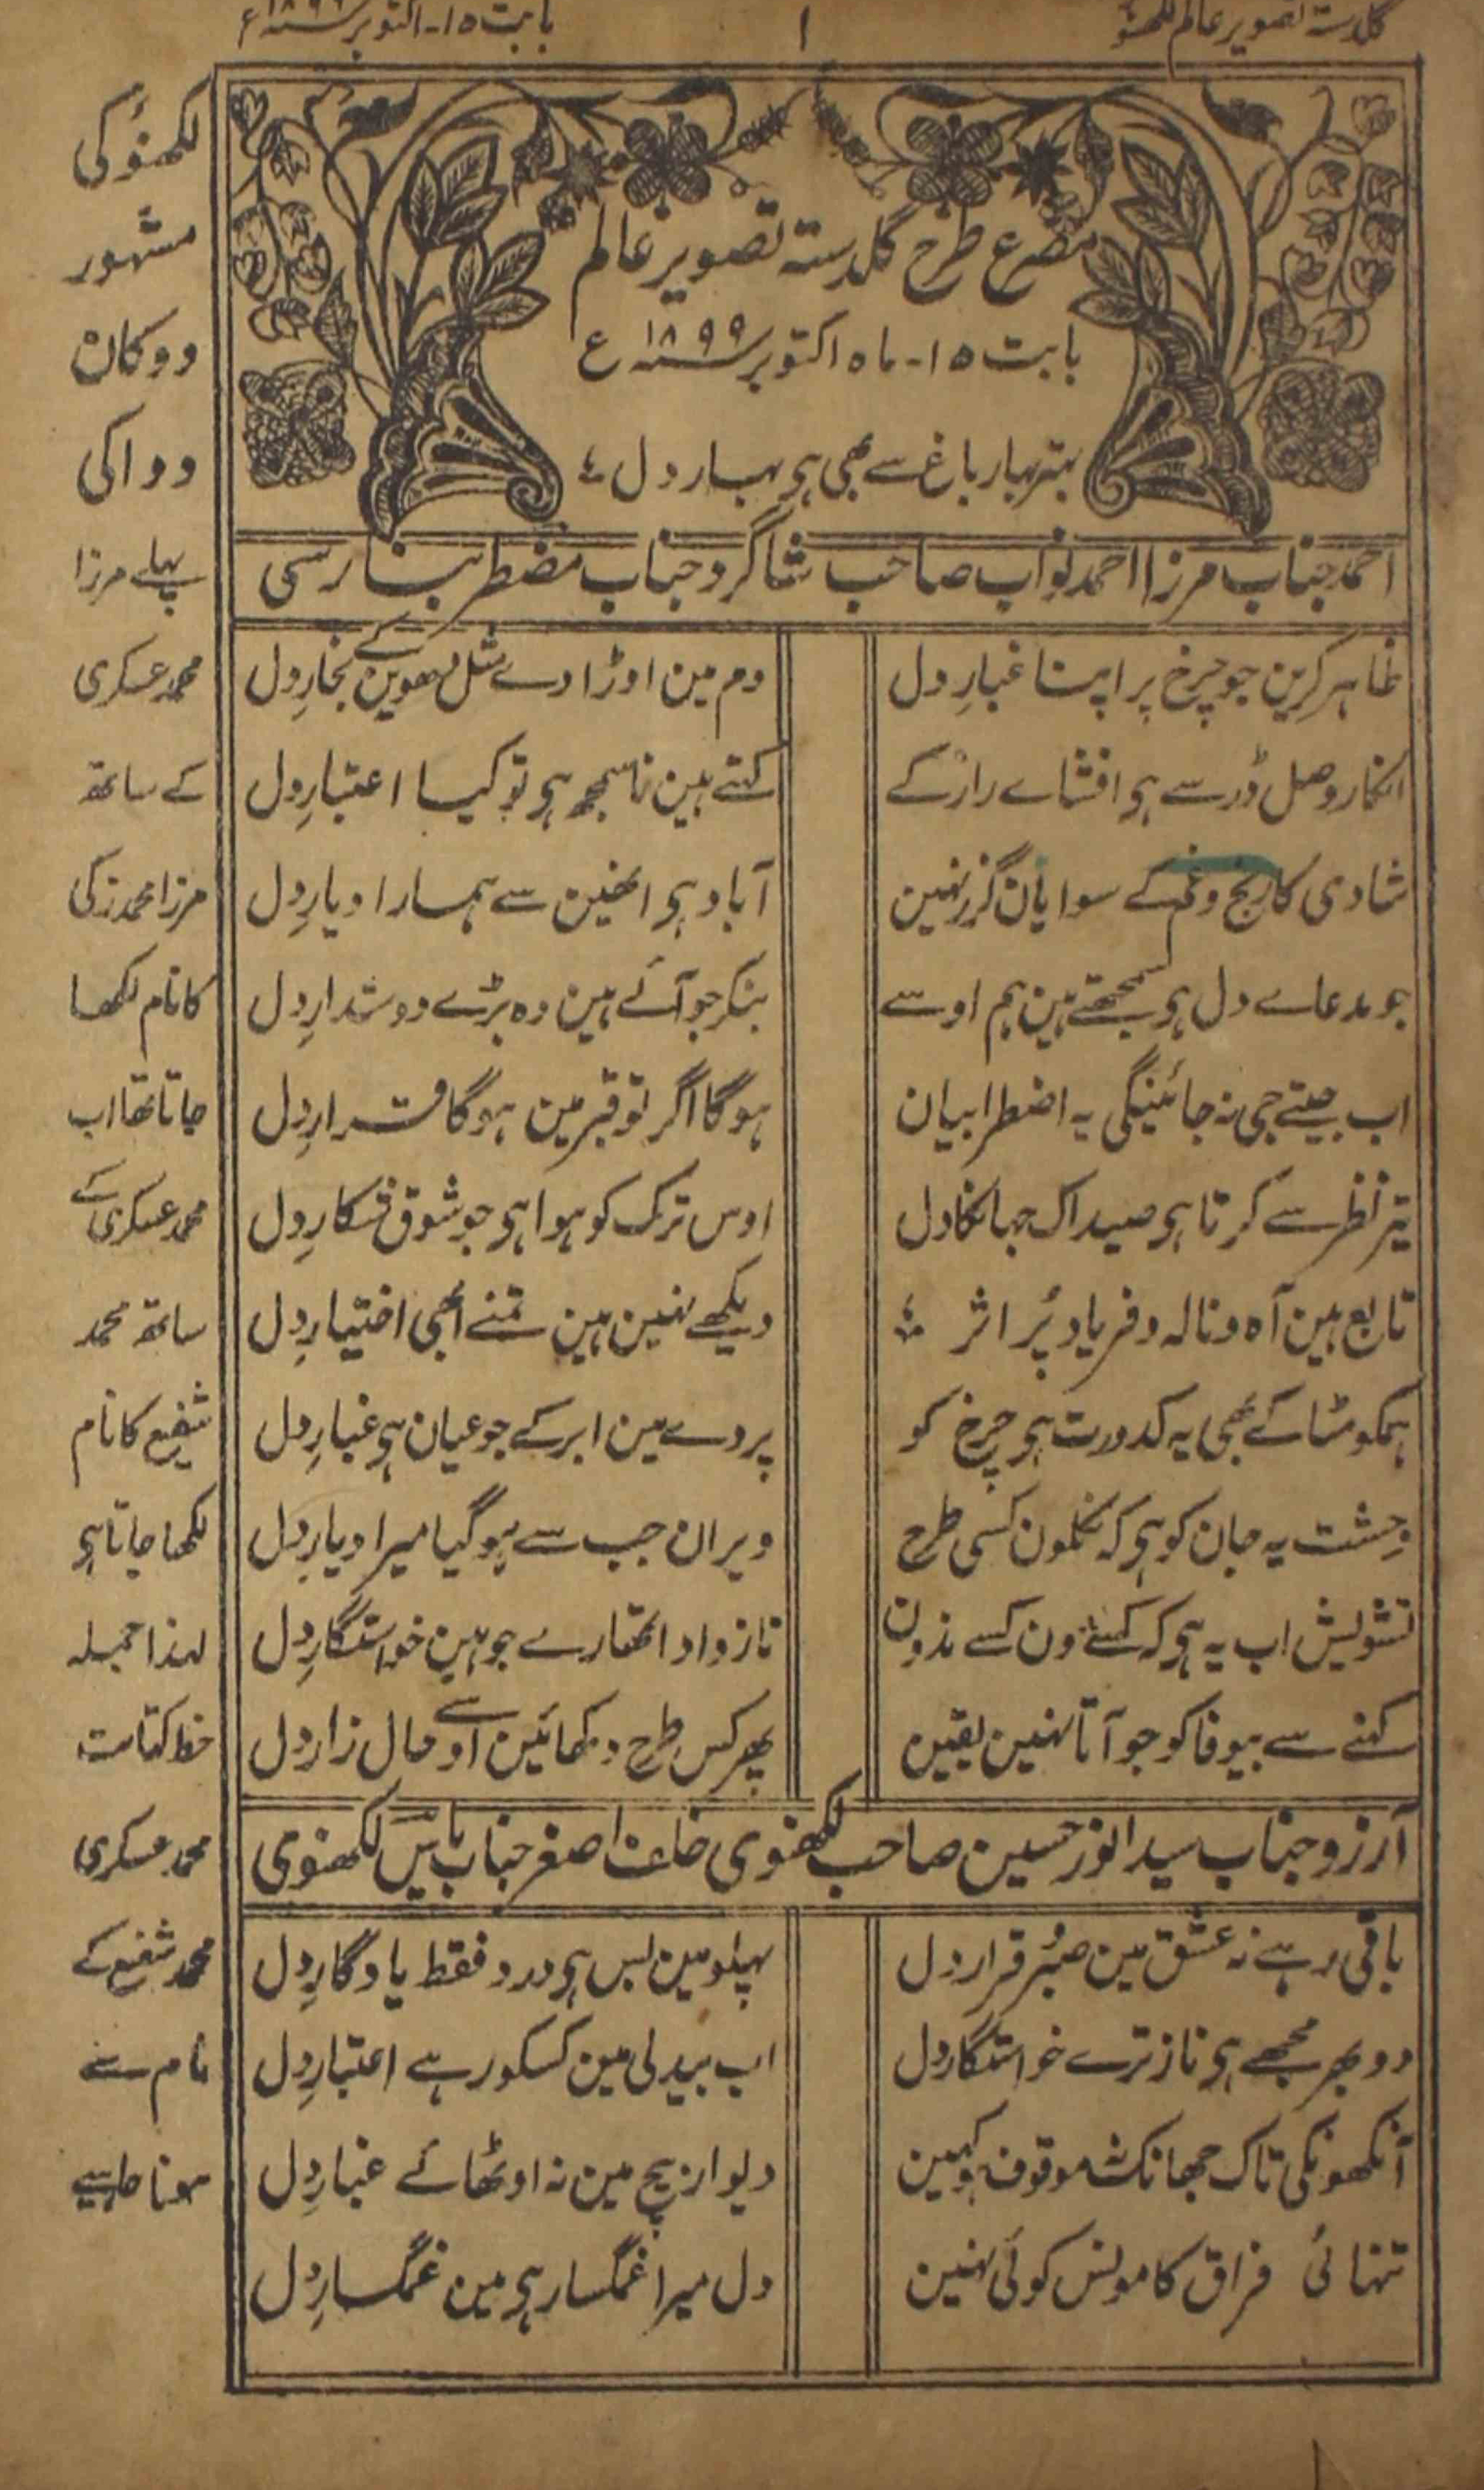 گلدستہ تصویر عالم لکھنؤ
۱
بابت ۱۵۔ اکتوبر ۱۸۹۹ء
مصرع طرح گلدستہ تصویر عالم
بابت ۱۵۔ ماہ اکتوبر ۱۸۹۹ء
بہتر بہار باغ سے بھی ہی بہار دل ؛
احمد جناب مرزا احمد نواب صاحب شاگرد جناب مضطر بنارسی
ظاہر کرین جو چرخ پر اپنا غبارِ دل
دم مین اوڑا دے مثل دھوین کے بخارِ دل
انکار وصل ڈر سے ہی افشاے راز کے
کہتے ہین ناسمجھ ہی تو کیسا اعتبارِ دل
شادی کا رنج و غم کے سوا یان گزر نہین
آباد ہی انھین سے ہمارا دیارِ دل
جو مدعاے دل ہی سمجھتے ہین ہم اوسے
بنکر جو آئے ہین وہ بڑے دوستدارِ دل
اب جیتے جی نہ جائینگی یہ اضطرابیان
ہوگا اگر تو قبر مین ہوگا قرارِ دل
تیر نظر سے کرتا ہی صید اک جہانکا دل
اوس ترک کو ہوا ہی جو شوق شکارِ دل
تابع ہین آہ و نالہ و فریاد پُر اثر ؛
دیکھے نہین ہین تمنے ابھی اختیارِ دل
ہمکو مٹا کے بھی یہ کدورت ہی چرخ کو
پردے مین ابر کے جو عیان ہی غبارِ دل
وحشت یہ جان کو ہی کہ نکلون کسی طرح
ویران جب سے ہو گیا میرا دیارِ دل
تشویش اب یہ ہی کہ کسے دون کسے ندون
ناز و ادا تھارے جو ہین خواستگارِ دل
کہنے سے بیوفا کو جو آتا نہین یقین
پھر کس طرح دکھائین اوسے حال زار دل
آرزو جناب سید انور حسین صاحب لکھنوی خلف اصغر جناب یاس لکھنوی
باقی رہے نہ عشق مین صبر و قرار دل
پہلو مین بس ہی درد فقط یادگارِ دل
دو بھر مجھے ہی ناز ترے خواستگار دل
اب بیدلی مین کسکو رہے اعتبارِ دل
آنکھونکی تاک جھانک نہ موقوف ہو کہین
دیوار بیچ مین نہ اوٹھائے غبارِ دل
تنہائی فراق کا مونس کوئی نہین
دل میرا غمگسار ہی مین غمگسارِ دل
لکھنؤ کی
مشہور
دوکان
دوا کی
پہلے مرزا
محمد عسکری
کے ساتھ
مرزا محمد زکی
کا نام لکھا
جاتا تھا اب
محمد عسکری کے
ساتھ محمد
شفیع کا نام
لکھا جاتا ہی
لہذا جملہ
خط کتابت
محمد عسکری
محمد شفیع کے
نام سے
ہونا چاہیے